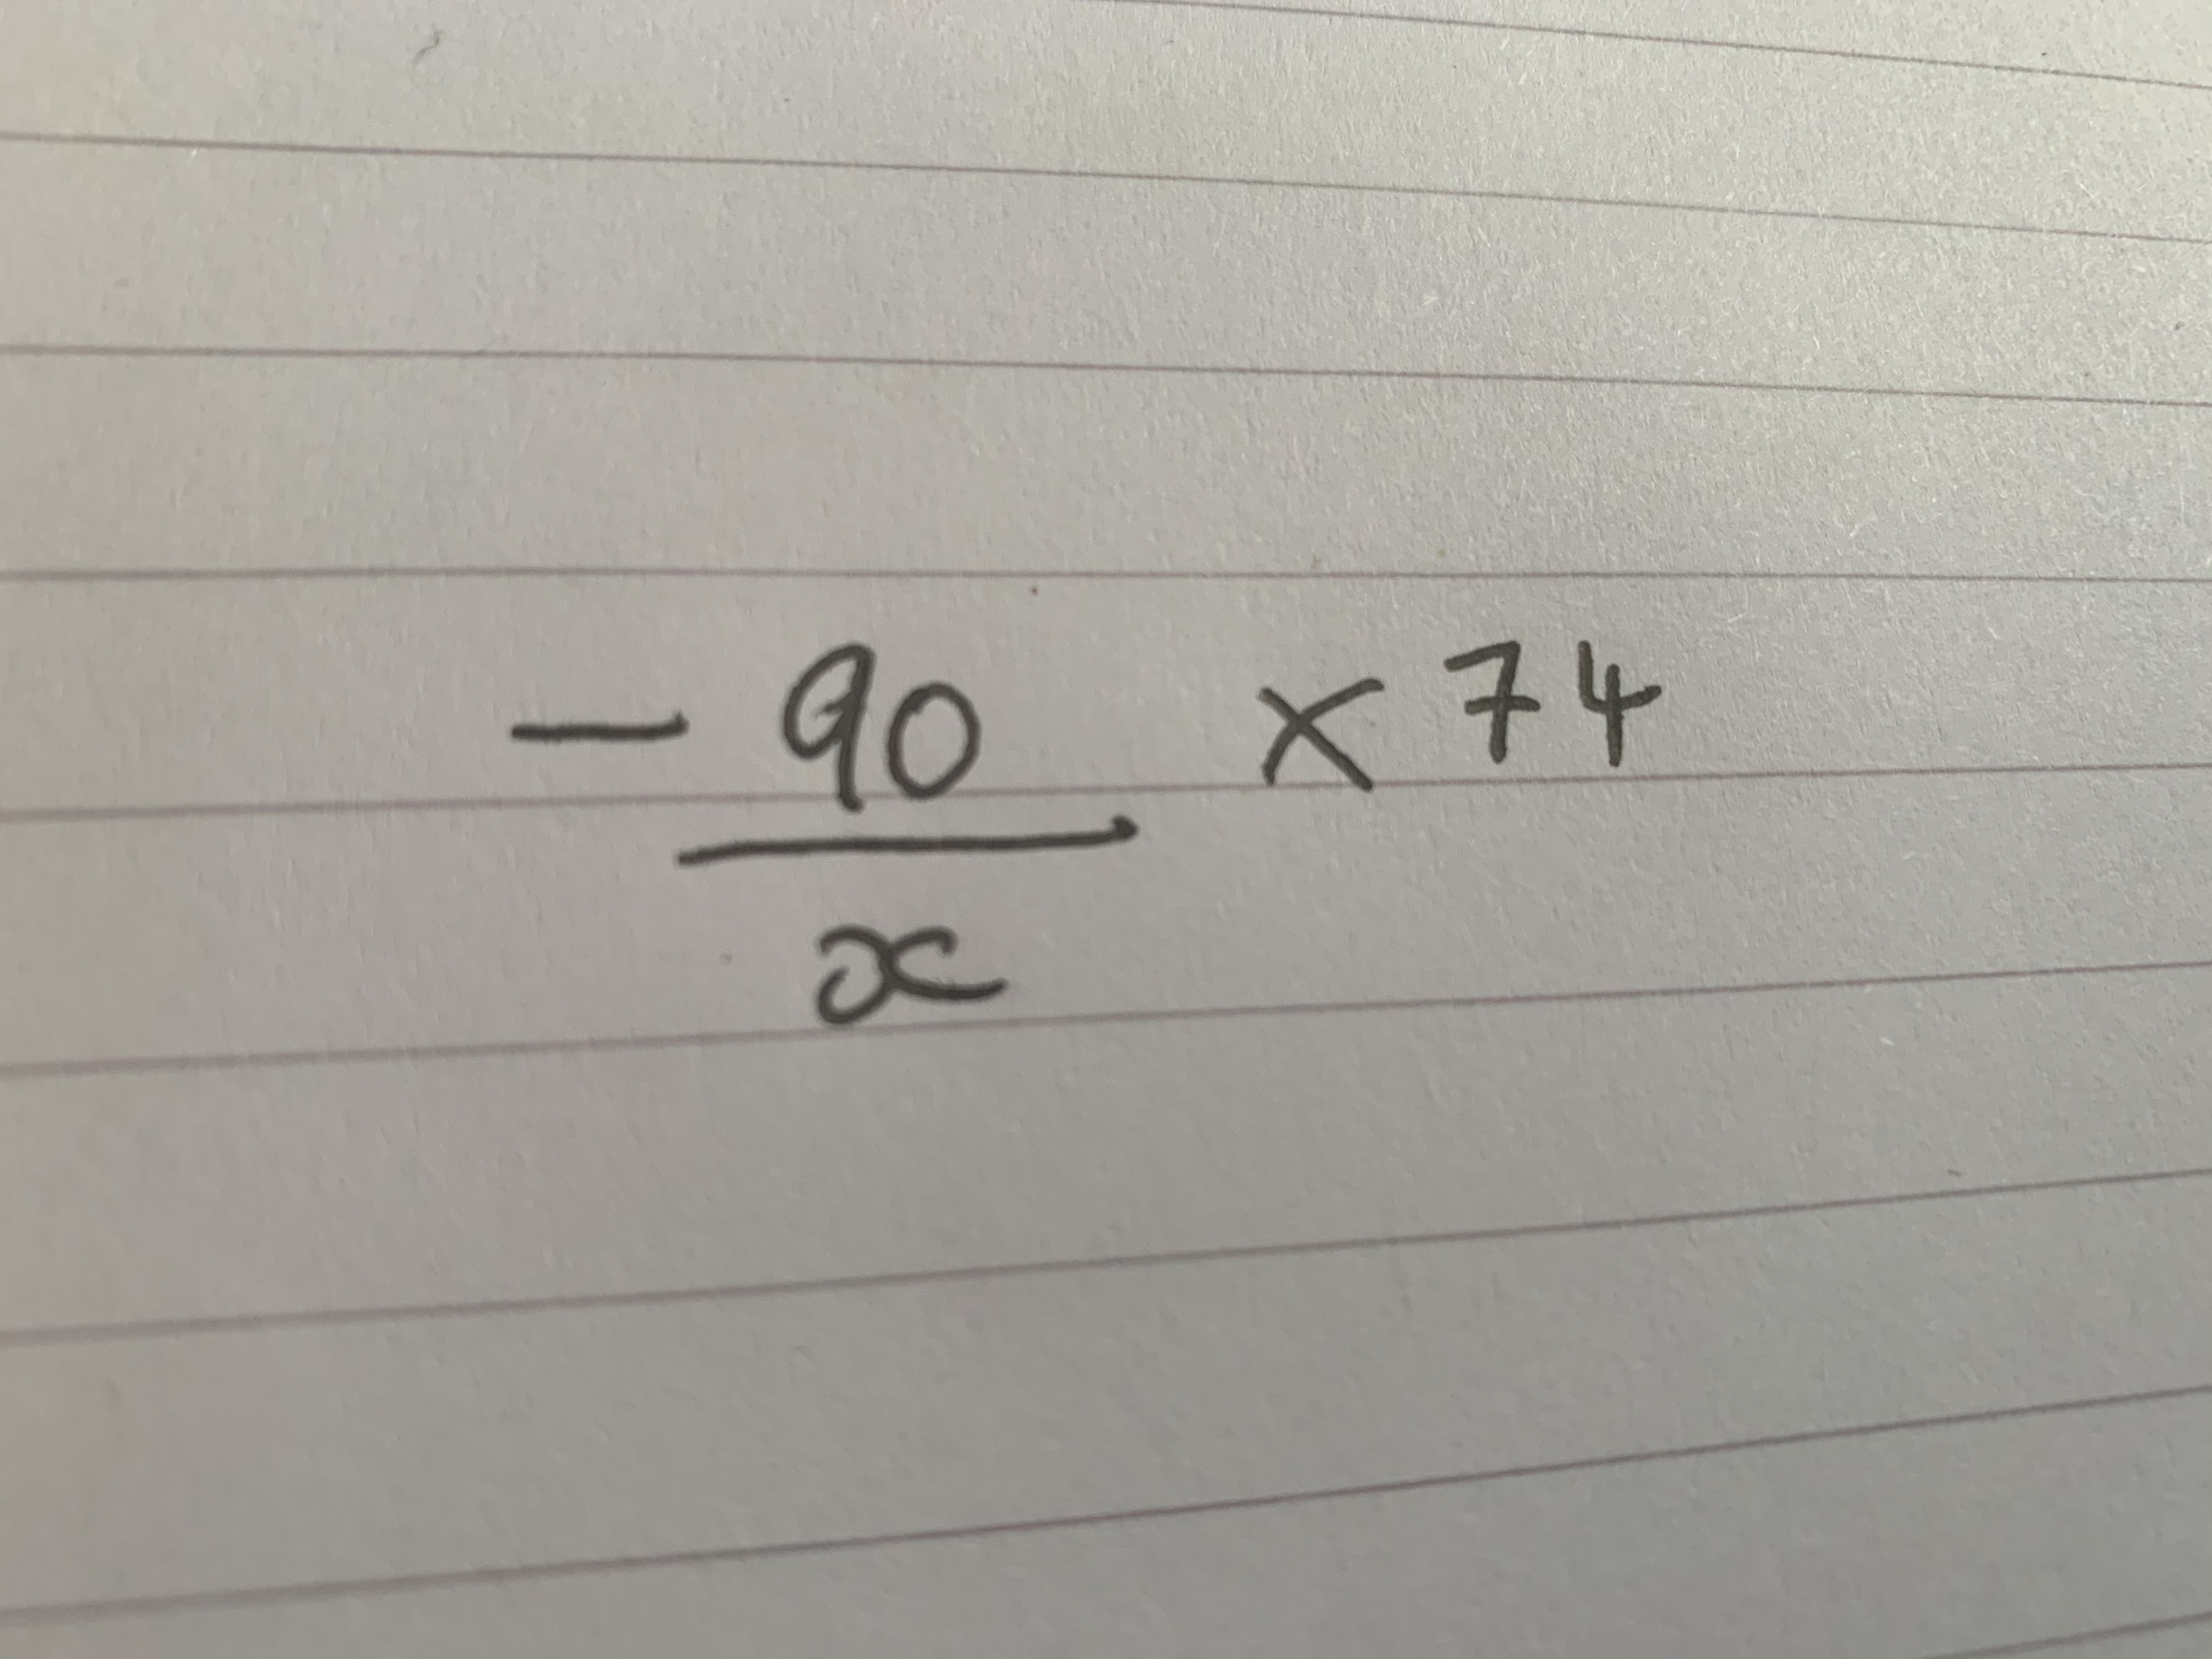 -90/x × 74